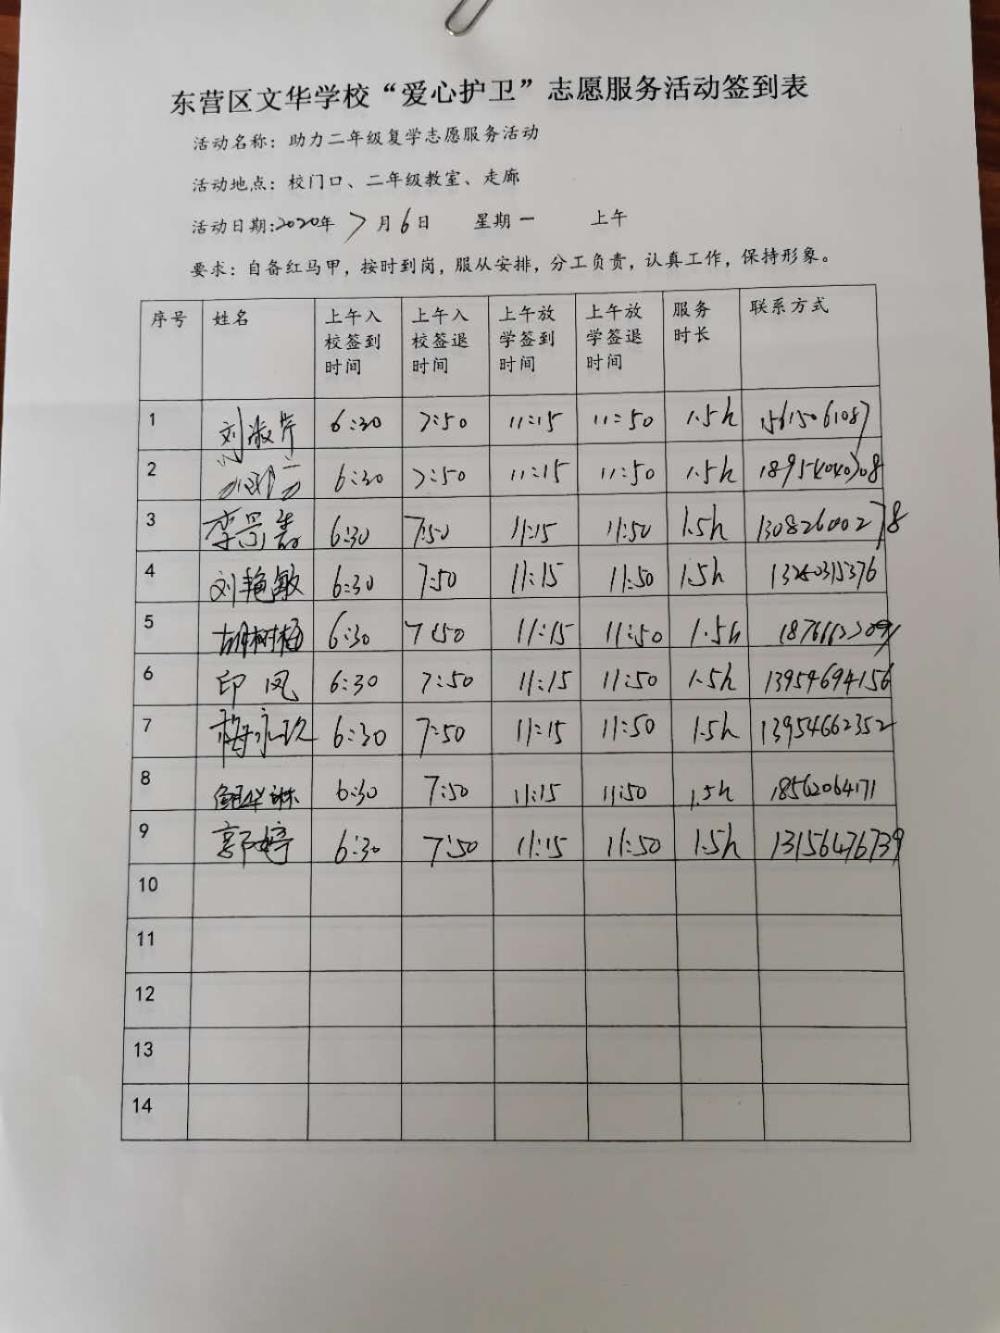 东营区文华学校“爱心护卫”志愿服务活动签到表
活动名称：助力二年级复学志愿服务活动
活动地点：校门口、二年级教室、走廊
活动日期:2020年 7月6日 星期一 上午
要求：自备红马甲，按时到岗，服从安排，分工负责，认真工作，保持形象。
序号 姓名 上午入校签到时间 上午入校签退时间 上午放学签到时间 上午放学签退时间 服务时长 联系方式
1 刘淑芹 6:30 7:50 11:15 11:50 1.5h 15615061087
2 6:30 7:50 11:15 11:50 1.5h
3 6:30 7:50 11:15 11:50 1.5h 13082600278
4 刘艳敏 6:30 7:50 11:15 11:50 1.5h
5 胡树梅 6:30 7:50 11:15 11:50 1.5h
6 印凤 6:30 7:50 11:15 11:50 1.5h 13954694156
7 梅永玖 6:30 7:50 11:15 11:50 1.5h 13954662352
8 6:30 7:50 11:15 11:50 1.5h
9 郭婷 6:30 7:50 11:15 11:50 1.5h 13156476739
10
11
12
13
14